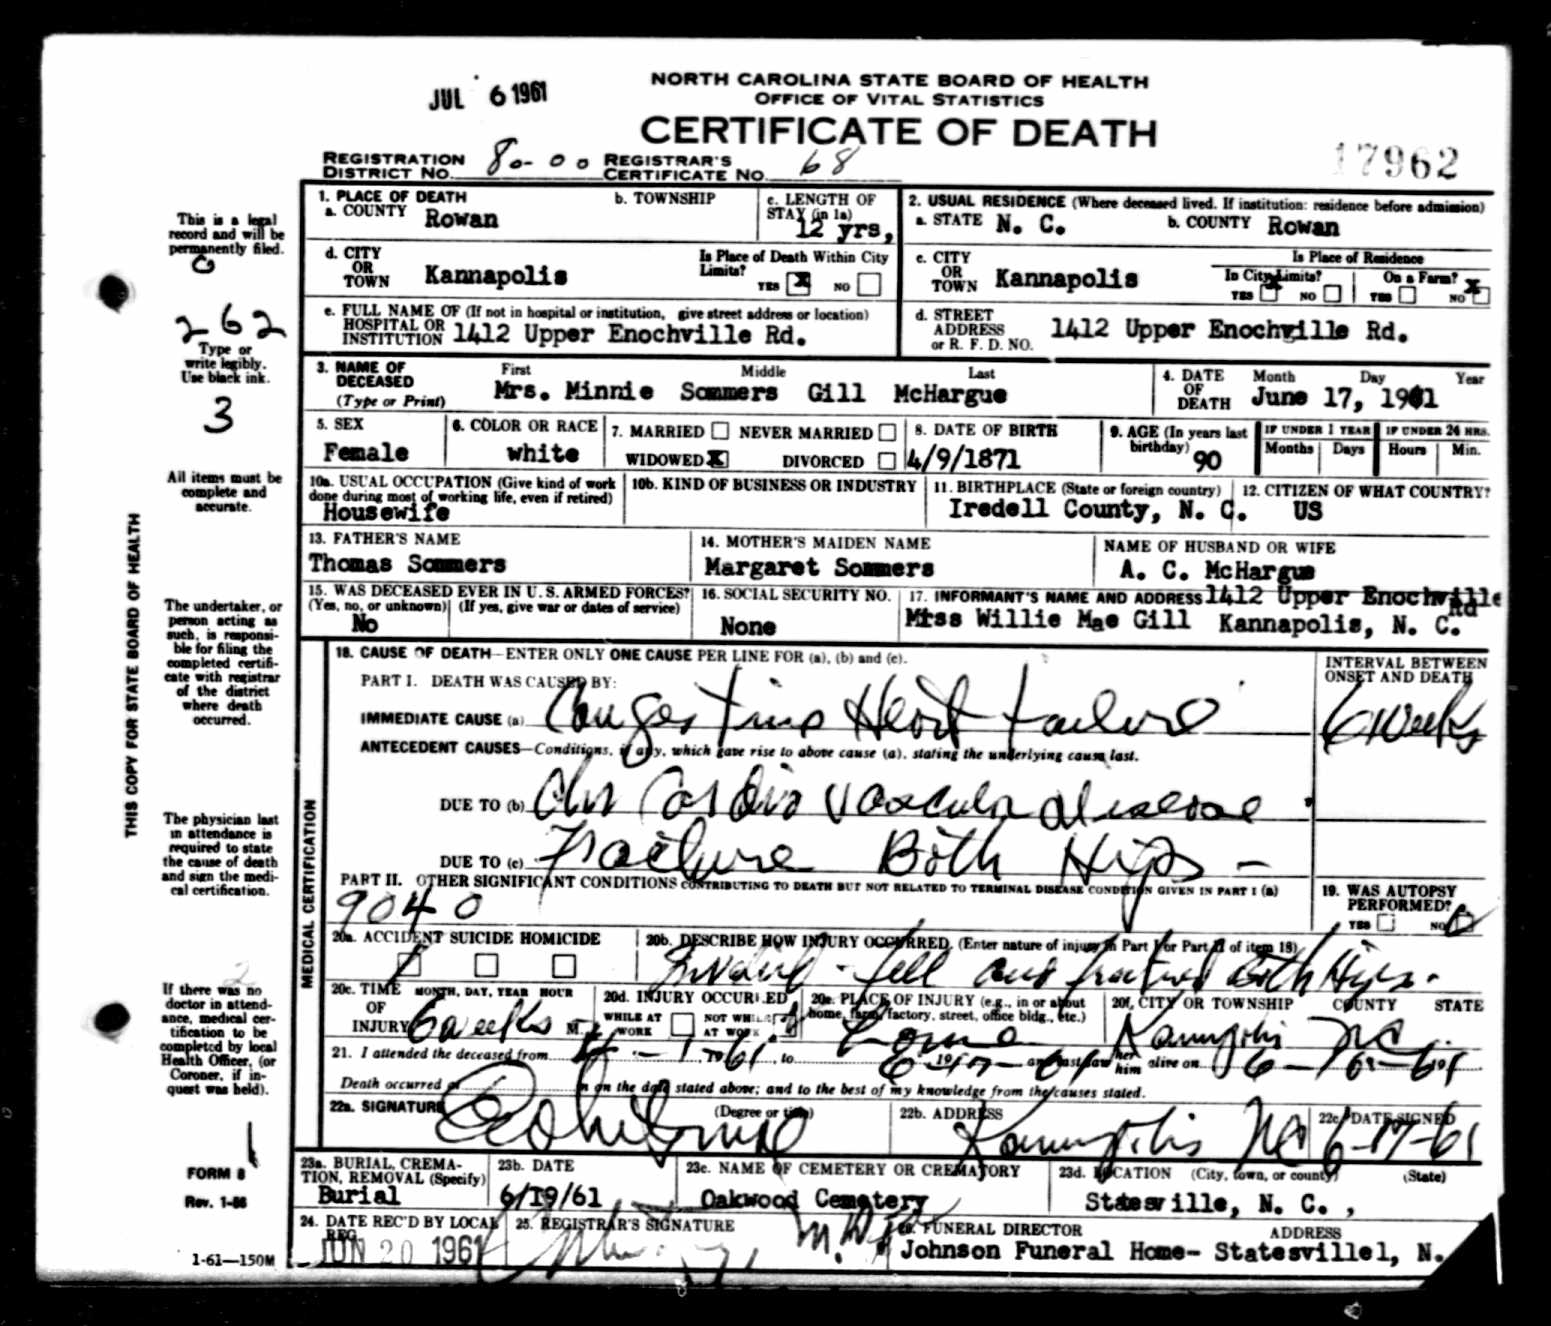 JUL 6 1961
NORTH CAROLINA STATE BOARD OF HEALTH
OFFICE OF VITAL STATISTICS
CERTIFICATE OF DEATH
17962
REGISTRATION DISTRICT NO. 80-00 REGISTRAR'S CERTIFICATE NO. 68
This is a legal
record and will be
permanently filed.
262
Type or
write legibly.
Use black ink.
3
All items must be
complete and
accurate.
THIS COPY FOR STATE BOARD OF HEALTH
The undertaker, or
person acting as
such, is responsi-
ble for filing the
completed certifi-
cate with registrar
of the district
where death
occurred.
The physician last
in attendance is
required to state
the cause of death
and sign the medi-
cal certification.
If there was no
doctor in attend-
ance, medical cer-
tification to be
completed by local
Health Officer, (or
Coroner, if in-
quest was held).
1
FORM 8
Rev. 1-56
1-61—150M
1. PLACE OF DEATH
a. COUNTY Rowan
b. TOWNSHIP
c. LENGTH OF STAY (in 1a) 12 yrs,
2. USUAL RESIDENCE (Where deceased lived. If institution: residence before admission)
a. STATE N. C. b. COUNTY Rowan
d. CITY OR TOWN Kannapolis
Is Place of Death Within City Limits? YES X NO
c. CITY OR TOWN Kannapolis
Is Place of Residence
In City Limits? YES NO On a Farm? YES NO X
e. FULL NAME OF (If not in hospital or institution, give street address or location)
HOSPITAL OR INSTITUTION 1412 Upper Enochville Rd.
d. STREET ADDRESS or R. F. D. NO. 1412 Upper Enochville Rd.
3. NAME OF DECEASED (Type or Print)
First Middle Last
Mrs. Minnie Sommers Gill McHargue
4. DATE OF DEATH Month Day Year
June 17, 1961
5. SEX Female
6. COLOR OR RACE white
7. MARRIED NEVER MARRIED
WIDOWED X DIVORCED
8. DATE OF BIRTH 4/9/1871
9. AGE (In years last birthday) 90
IF UNDER 1 YEAR Months Days
IF UNDER 24 HRS. Hours Min.
10a. USUAL OCCUPATION (Give kind of work done during most of working life, even if retired)
Housewife
10b. KIND OF BUSINESS OR INDUSTRY
11. BIRTHPLACE (State or foreign country)
Iredell County, N. C.
12. CITIZEN OF WHAT COUNTRY?
US
13. FATHER'S NAME
Thomas Sommers
14. MOTHER'S MAIDEN NAME
Margaret Sommers
NAME OF HUSBAND OR WIFE
A. C. McHargue
15. WAS DECEASED EVER IN U. S. ARMED FORCES?
(Yes, no, or unknown) (If yes, give war or dates of service)
No
16. SOCIAL SECURITY NO.
None
17. INFORMANT'S NAME AND ADDRESS 1412 Upper Enochville Rd
Miss Willie Mae Gill Kannapolis, N. C.
MEDICAL CERTIFICATION
18. CAUSE OF DEATH—ENTER ONLY ONE CAUSE PER LINE FOR (a), (b) and (c).
INTERVAL BETWEEN ONSET AND DEATH
PART I. DEATH WAS CAUSED BY:
IMMEDIATE CAUSE (a) Congestive Heart Failure 6 weeks
ANTECEDENT CAUSES—Conditions, if any, which gave rise to above cause (a), stating the underlying cause last.
DUE TO (b) Chr Cardio vascular disease
DUE TO (c) Fracture Both Hips -
PART II. OTHER SIGNIFICANT CONDITIONS CONTRIBUTING TO DEATH BUT NOT RELATED TO TERMINAL DISEASE CONDITION GIVEN IN PART I (a)
9040
19. WAS AUTOPSY PERFORMED?
YES NO
20a. ACCIDENT SUICIDE HOMICIDE
20b. DESCRIBE HOW INJURY OCCURRED. (Enter nature of injury in Part I or Part II of item 18)
Invalid - fell and fractured Both Hips.
20c. TIME OF INJURY MONTH, DAY, YEAR HOUR
6 weeks M.
20d. INJURY OCCURRED
WHILE AT WORK NOT WHILE AT WORK
20e. PLACE OF INJURY (e.g., in or about home, farm, factory, street, office bldg., etc.)
Home
20f. CITY OR TOWNSHIP COUNTY STATE
Kannapolis NC
21. I attended the deceased from 1-61, to 6-17-61 and last saw her him alive on 6-16-61
Death occurred at m on the date stated above; and to the best of my knowledge from the causes stated.
22a. SIGNATURE (Degree or title)
22b. ADDRESS
Kannapolis NC
22c. DATE SIGNED
6-17-61
23a. BURIAL, CREMATION, REMOVAL (Specify)
Burial
23b. DATE
6/19/61
23c. NAME OF CEMETERY OR CREMATORY
Oakwood Cemetery
23d. LOCATION (City, town, or county) (State)
Statesville, N. C. ,
24. DATE REC'D BY LOCAL REG.
JUN 20 1961
25. REGISTRAR'S SIGNATURE
26. FUNERAL DIRECTOR ADDRESS
Johnson Funeral Home- Statesvillel, N.